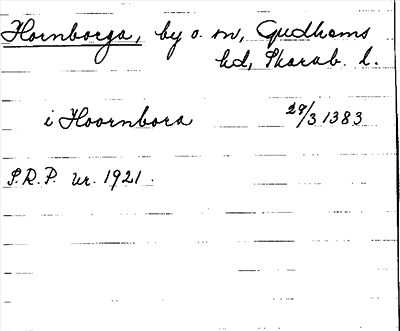 Hornborga, by o. sn, Gudhems
hd, Skarab. l.
i Hoornbora 29/3 1383
S.R.P. nr. 1921.